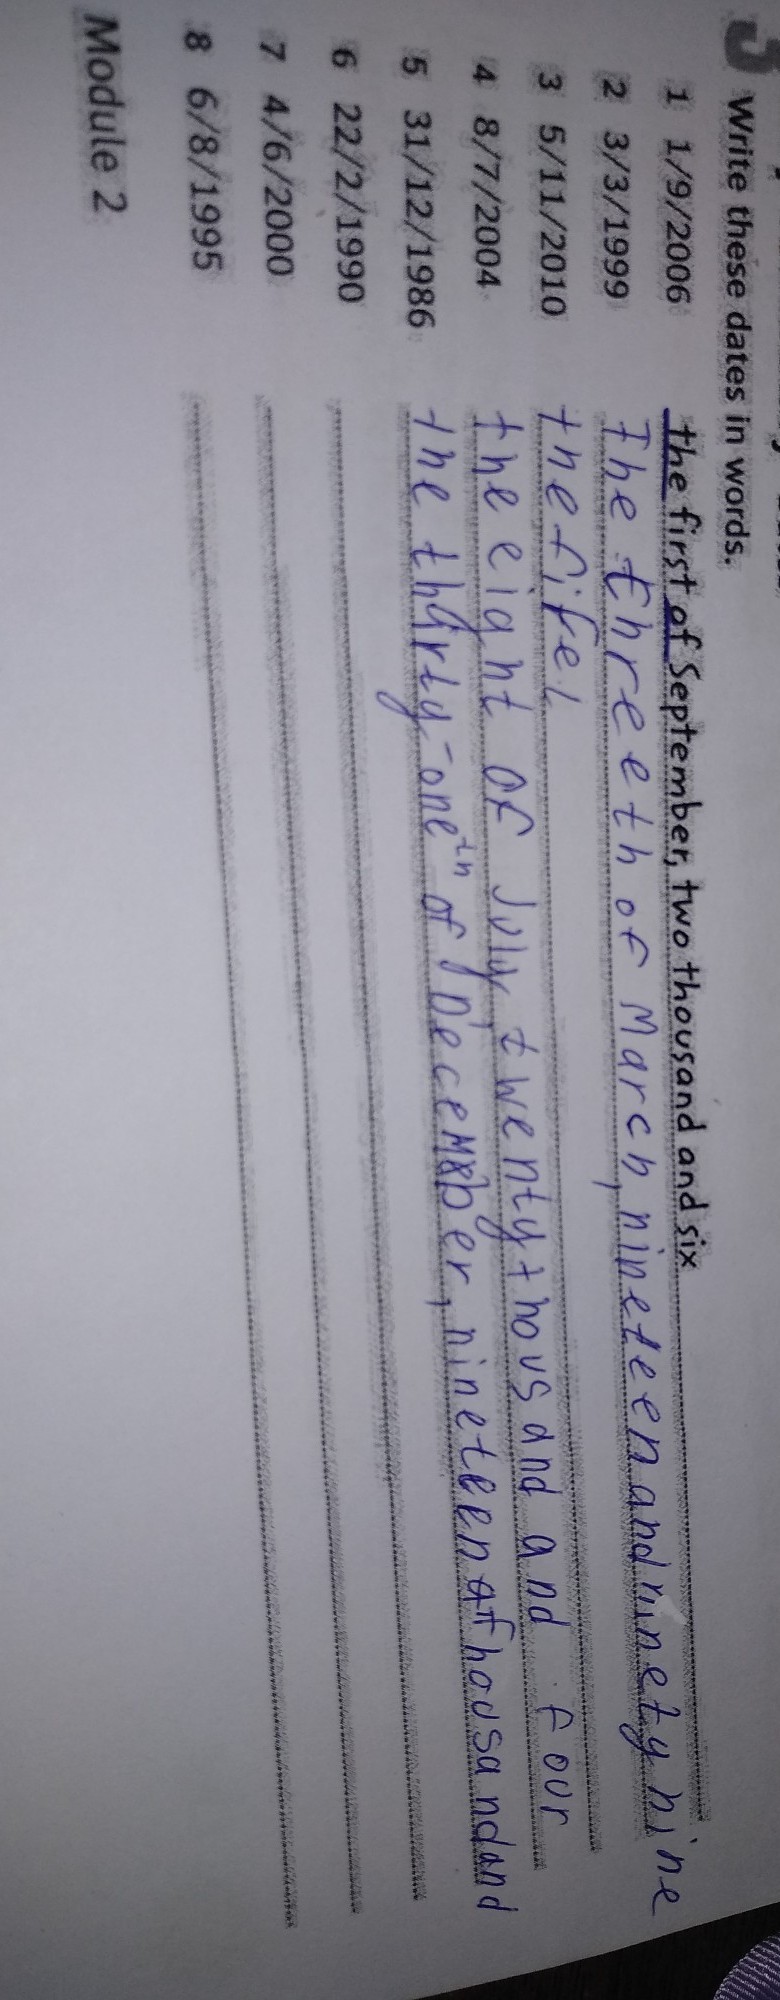 3 Write these dates in words.
1 1/9/2006 the first of September, two thousand and six
2 3/3/1999 The threeth of March, nineteen and ninety nine
3 5/11/2010 the fife
4 8/7/2004 the eight of July, twenty thousand and four
5 31/12/1986 the thirty-one th of December, nineteen thousand and
6 22/2/1990
7 4/6/2000
8 6/8/1995
Module 2